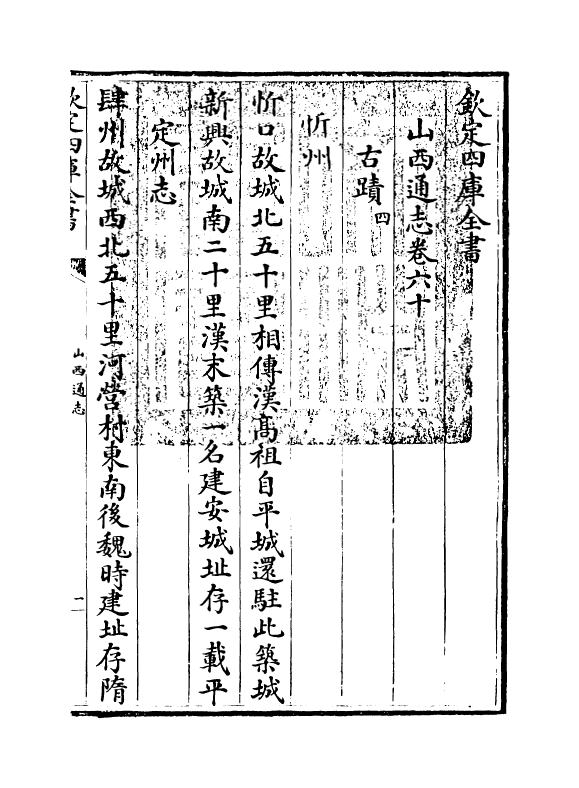 欽定四庫全書
山西通志卷六十
古蹟四
忻州
忻口故城北五十里相傳漢髙祖自平城還駐此築城
新興故城南二十里漢末築一名建安城址存一載平
定州志
肆州故城西北五十里河營村東南後魏時建址存隋
欽定四庫全書
山西通志